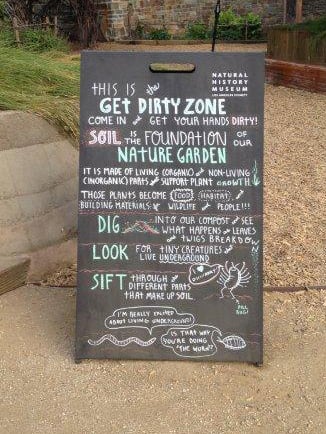 NATURAL
HISTORY
MUSEUM
LOS ANGELES COUNTY
THIS IS the
GET DIRTY ZONE
COME IN and GET YOUR HANDS DIRTY!
SOIL IS THE FOUNDATION OF OUR
NATURE GARDEN
IT IS MADE OF LIVING (ORGANIC) and NON-LIVING
(INORGANIC) PARTS and SUPPORT PLANT GROWTH.
THOSE PLANTS BECOME FOOD, HABITAT, and
BUILDING MATERIALS for WILDLIFE and PEOPLE!!!
DIG INTO OUR COMPOST and SEE
WHAT HAPPENS as LEAVES
and TWIGS BREAKDOWN
LOOK FOR TINY CREATURES that
LIVE UNDERGROUND
SIFT THROUGH the
DIFFERENT PARTS
THAT MAKE UP SOIL.
PILL
BUG!
I'M REALLY EXCITED
ABOUT LIVING UNDERGROUND!
IS THAT WHY
YOU'RE DOING
"THE WORM"?